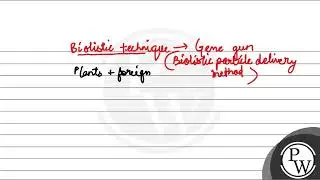 Biolistic technique → Gene gun
(Biolistic particle delivery
Plants + foreign method)
PW